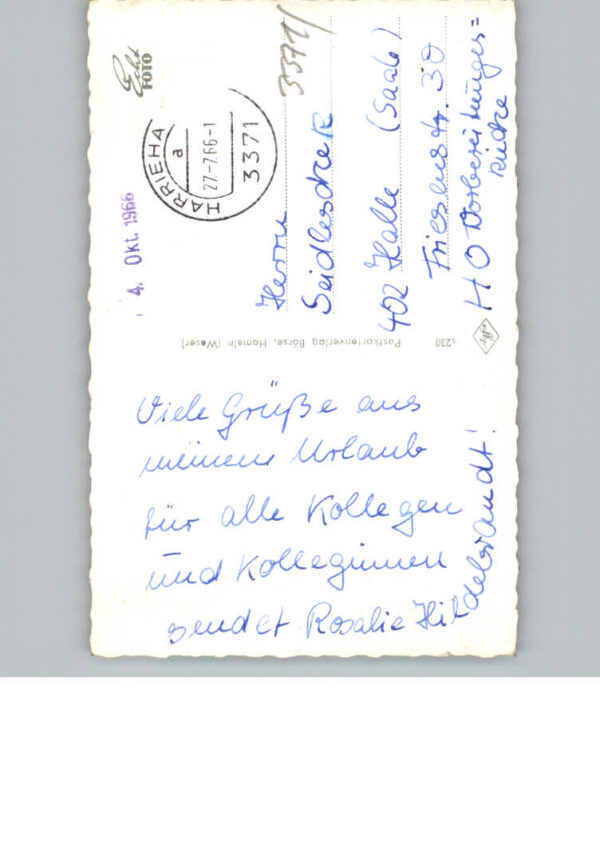 Viele Grüße aus
meinem Urlaub
für alle Kollegen
und Kolleginnen
sendet Rosalie Hildebrandt!
Echt
FOTO
4. Okt. 1966
HARRIEHA
a
27-7.66-1
3371
3371/
Herrn
402 Halle (Saale)
Friesenstr. 30
HO Vorbereitungs=
küche
Postkartenverlag Börse, Hameln (Weser)
s230